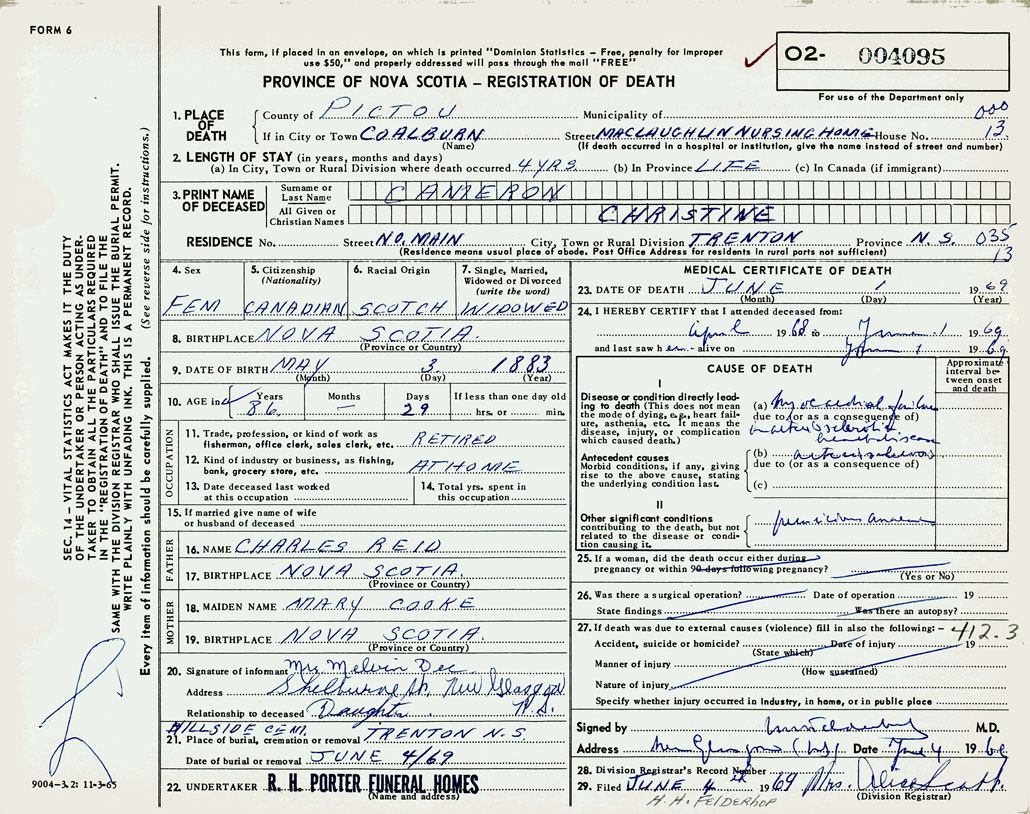 FORM 6
This form, if placed in an envelope, on which is printed "Dominion Statistics – Free, penalty for improper
use $50," and properly addressed will pass through the mail "FREE"
O2- 004095
PROVINCE OF NOVA SCOTIA – REGISTRATION OF DEATH
For use of the Department only
SEC. 14 – VITAL STATISTICS ACT MAKES IT THE DUTY
OF THE UNDERTAKER OR PERSON ACTING AS UNDER-
TAKER TO OBTAIN ALL THE PARTICULARS REQUIRED
IN THE "REGISTRATION OF DEATH" AND TO FILE THE
SAME WITH THE DIVISION REGISTRAR WHO SHALL ISSUE THE BURIAL PERMIT.
WRITE PLAINLY WITH UNFADING INK. THIS IS A PERMANENT RECORD.
Every item of information should be carefully supplied. (See reverse side for instructions.)
9004–3.2: 11-3-65
1. PLACE OF DEATH
County of PICTOU Municipality of 000
If in City or Town COALBURN Street MACLAUGHLIN NURSING HOME House No. 13
(Name) (If death occurred in a hospital or institution, give the name instead of street and number)
2. LENGTH OF STAY (in years, months and days)
(a) In City, Town or Rural Division where death occurred 4 YRS (b) In Province LIFE (c) In Canada (if immigrant)
3. PRINT NAME OF DECEASED
Surname or Last Name CAMERON
All Given or Christian Names CHRISTINE
RESIDENCE No. Street NO. MAIN City, Town or Rural Division TRENTON Province N.S. 035
(Residence means usual place of abode. Post Office Address for residents in rural parts not sufficient) 13
4. Sex FEM
5. Citizenship (Nationality) CANADIAN
6. Racial Origin SCOTCH
7. Single, Married, Widowed or Divorced (write the word) WIDOWED
8. BIRTHPLACE NOVA SCOTIA
(Province or Country)
9. DATE OF BIRTH MAY 3 1883
(Month) (Day) (Year)
10. AGE in Years 86 Months – Days 29 If less than one day old hrs. or min.
OCCUPATION
11. Trade, profession, or kind of work as
fisherman, office clerk, sales clerk, etc. RETIRED
12. Kind of industry or business, as fishing,
bank, grocery store, etc. AT HOME
13. Date deceased last worked
at this occupation
14. Total yrs. spent in
this occupation
15. If married give name of wife
or husband of deceased
FATHER
16. NAME CHARLES REID
17. BIRTHPLACE NOVA SCOTIA.
(Province or Country)
MOTHER
18. MAIDEN NAME MARY COOKE
19. BIRTHPLACE NOVA SCOTIA.
(Province or Country)
20. Signature of informant Mrs Melvin Dee
Address Shelburne St. New Glasgow N.S.
Relationship to deceased Daughter
HILLSIDE CEM.
21. Place of burial, cremation or removal TRENTON N.S.
Date of burial or removal JUNE 4/69
22. UNDERTAKER R. H. PORTER FUNERAL HOMES
(Name and address)
MEDICAL CERTIFICATE OF DEATH
23. DATE OF DEATH JUNE 1 1969
(Month) (Day) (Year)
24. I HEREBY CERTIFY that I attended deceased from:
April 1968 to June 1 1969
and last saw her alive on June 1 1969
CAUSE OF DEATH
Approximate interval between onset and death
I
Disease or condition directly lead-
ing to death (This does not mean
the mode of dying, e.g., heart fail-
ure, asthenia, etc. It means the
disease, injury, or complication
which caused death.)
(a) myocardial failure
due to (or as a consequence of)
arteriosclerotic
heart disease
Antecedent causes
Morbid conditions, if any, giving
rise to the above cause, stating
the underlying condition last.
(b) arteriosclerosis
due to (or as a consequence of)
(c)
II
Other significant conditions
contributing to the death, but not
related to the disease or condi-
tion causing it.
pernicious anaemia
25. If a woman, did the death occur either during
pregnancy or within 90 days following pregnancy?
(Yes or No)
26. Was there a surgical operation? Date of operation 19
State findings Was there an autopsy?
27. If death was due to external causes (violence) fill in also the following: – 412.3
Accident, suicide or homicide? Date of injury 19
(State which)
Manner of injury
(How sustained)
Nature of injury
Specify whether injury occurred in industry, in home, or in public place
Signed by M.D.
Address New Glasgow (N.S.) Date June 4 1969
28. Division Registrar's Record Number
29. Filed JUNE 4th 1969 Mrs. Alice Scott.
(Division Registrar)
H. H. FELDERHOF